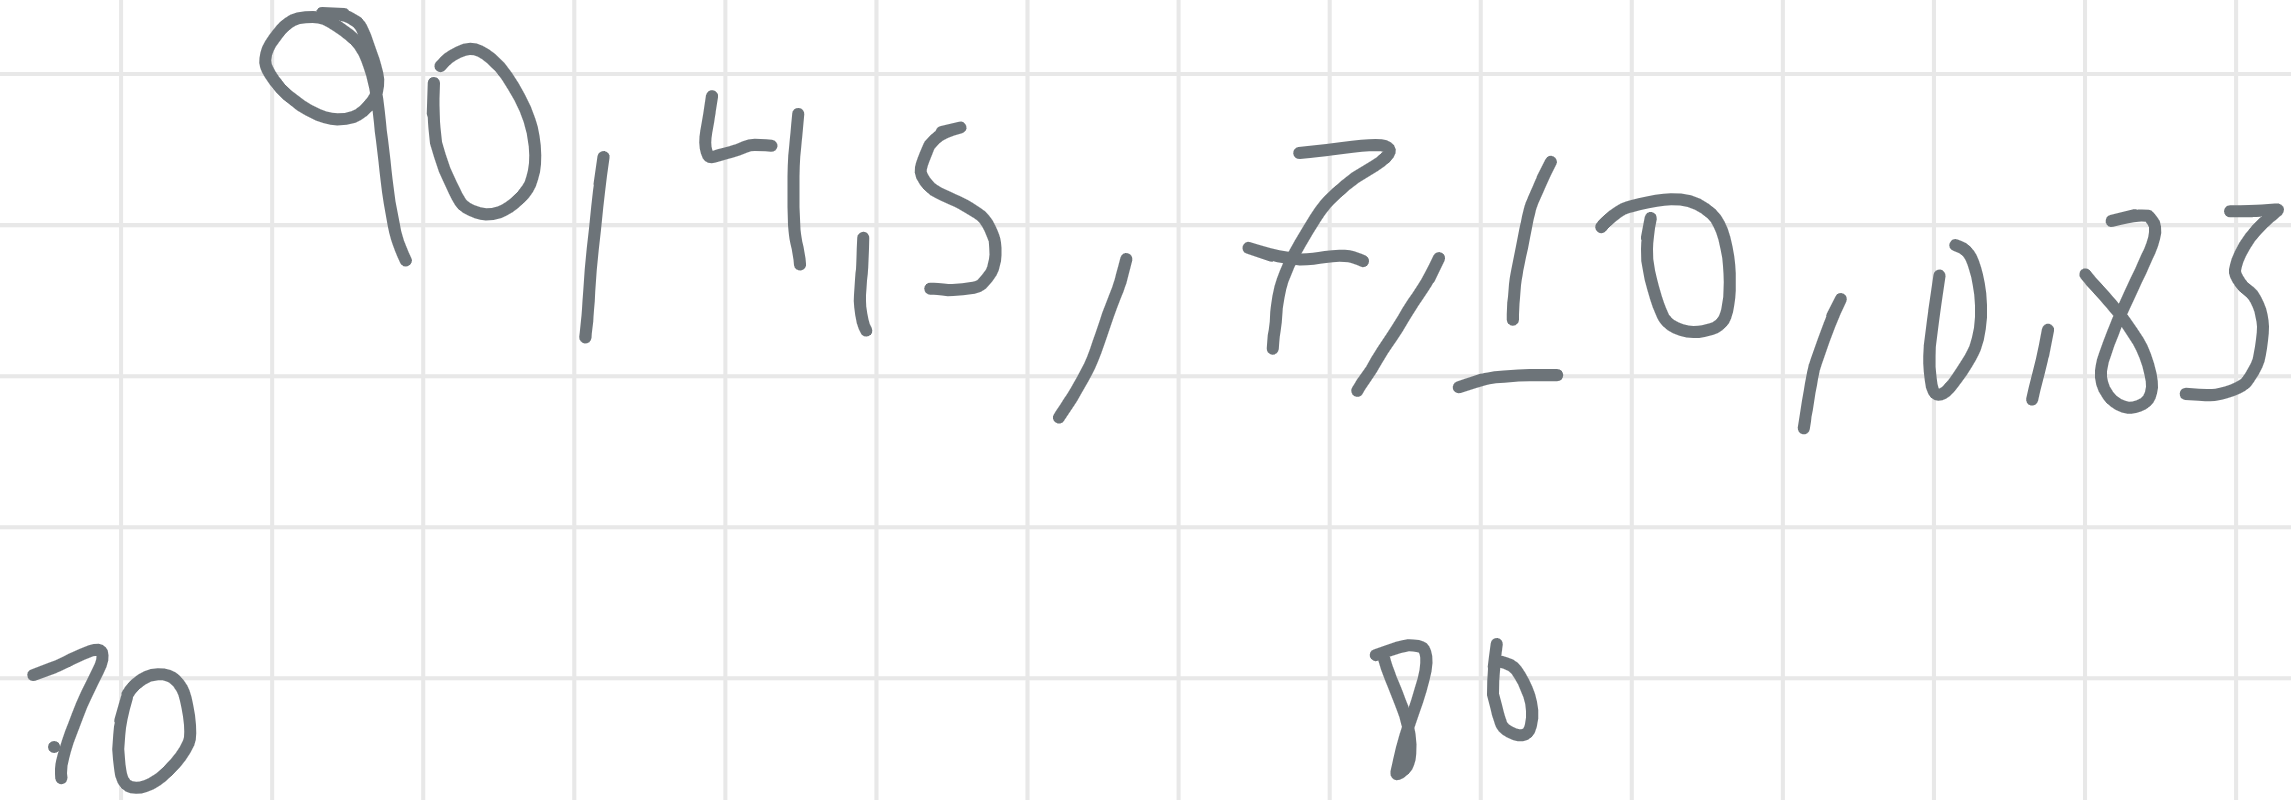 90, 4,5, 7, 10, 0,83
70 80